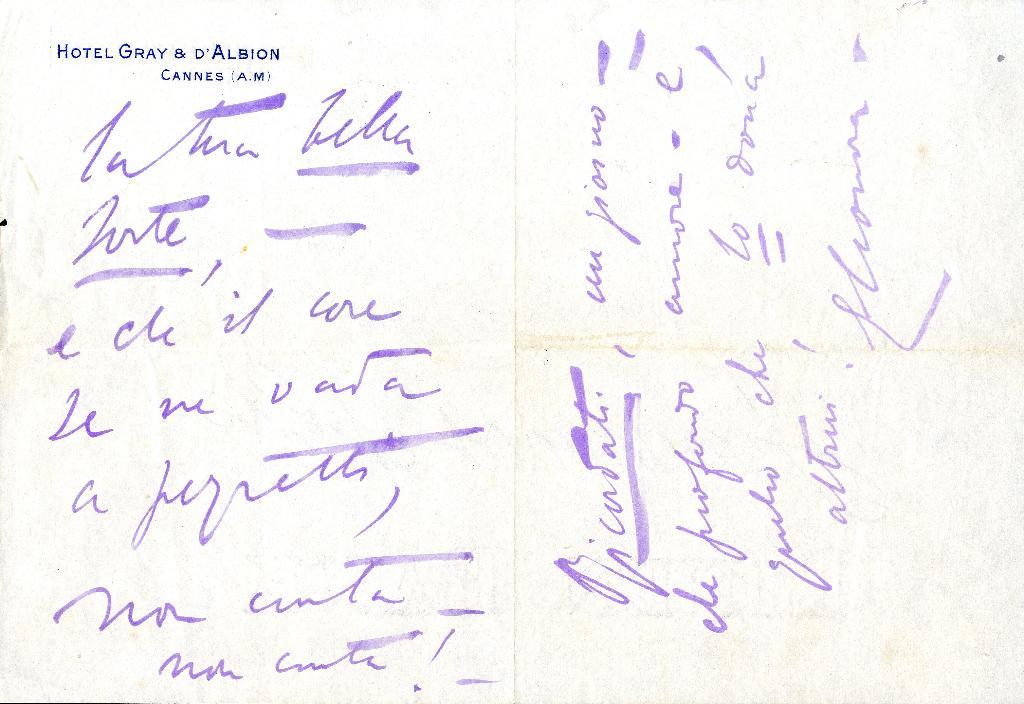 HOTEL GRAY & D'ALBION
CANNES (A.M)
la tua bella
sorte, —
e che il core
se ne vada
a pezzetti,
non conta —
non conta! —
Ricordati, un giorno —
che profondo amore - e
quello che lo donò
altrui!
Eleonora -